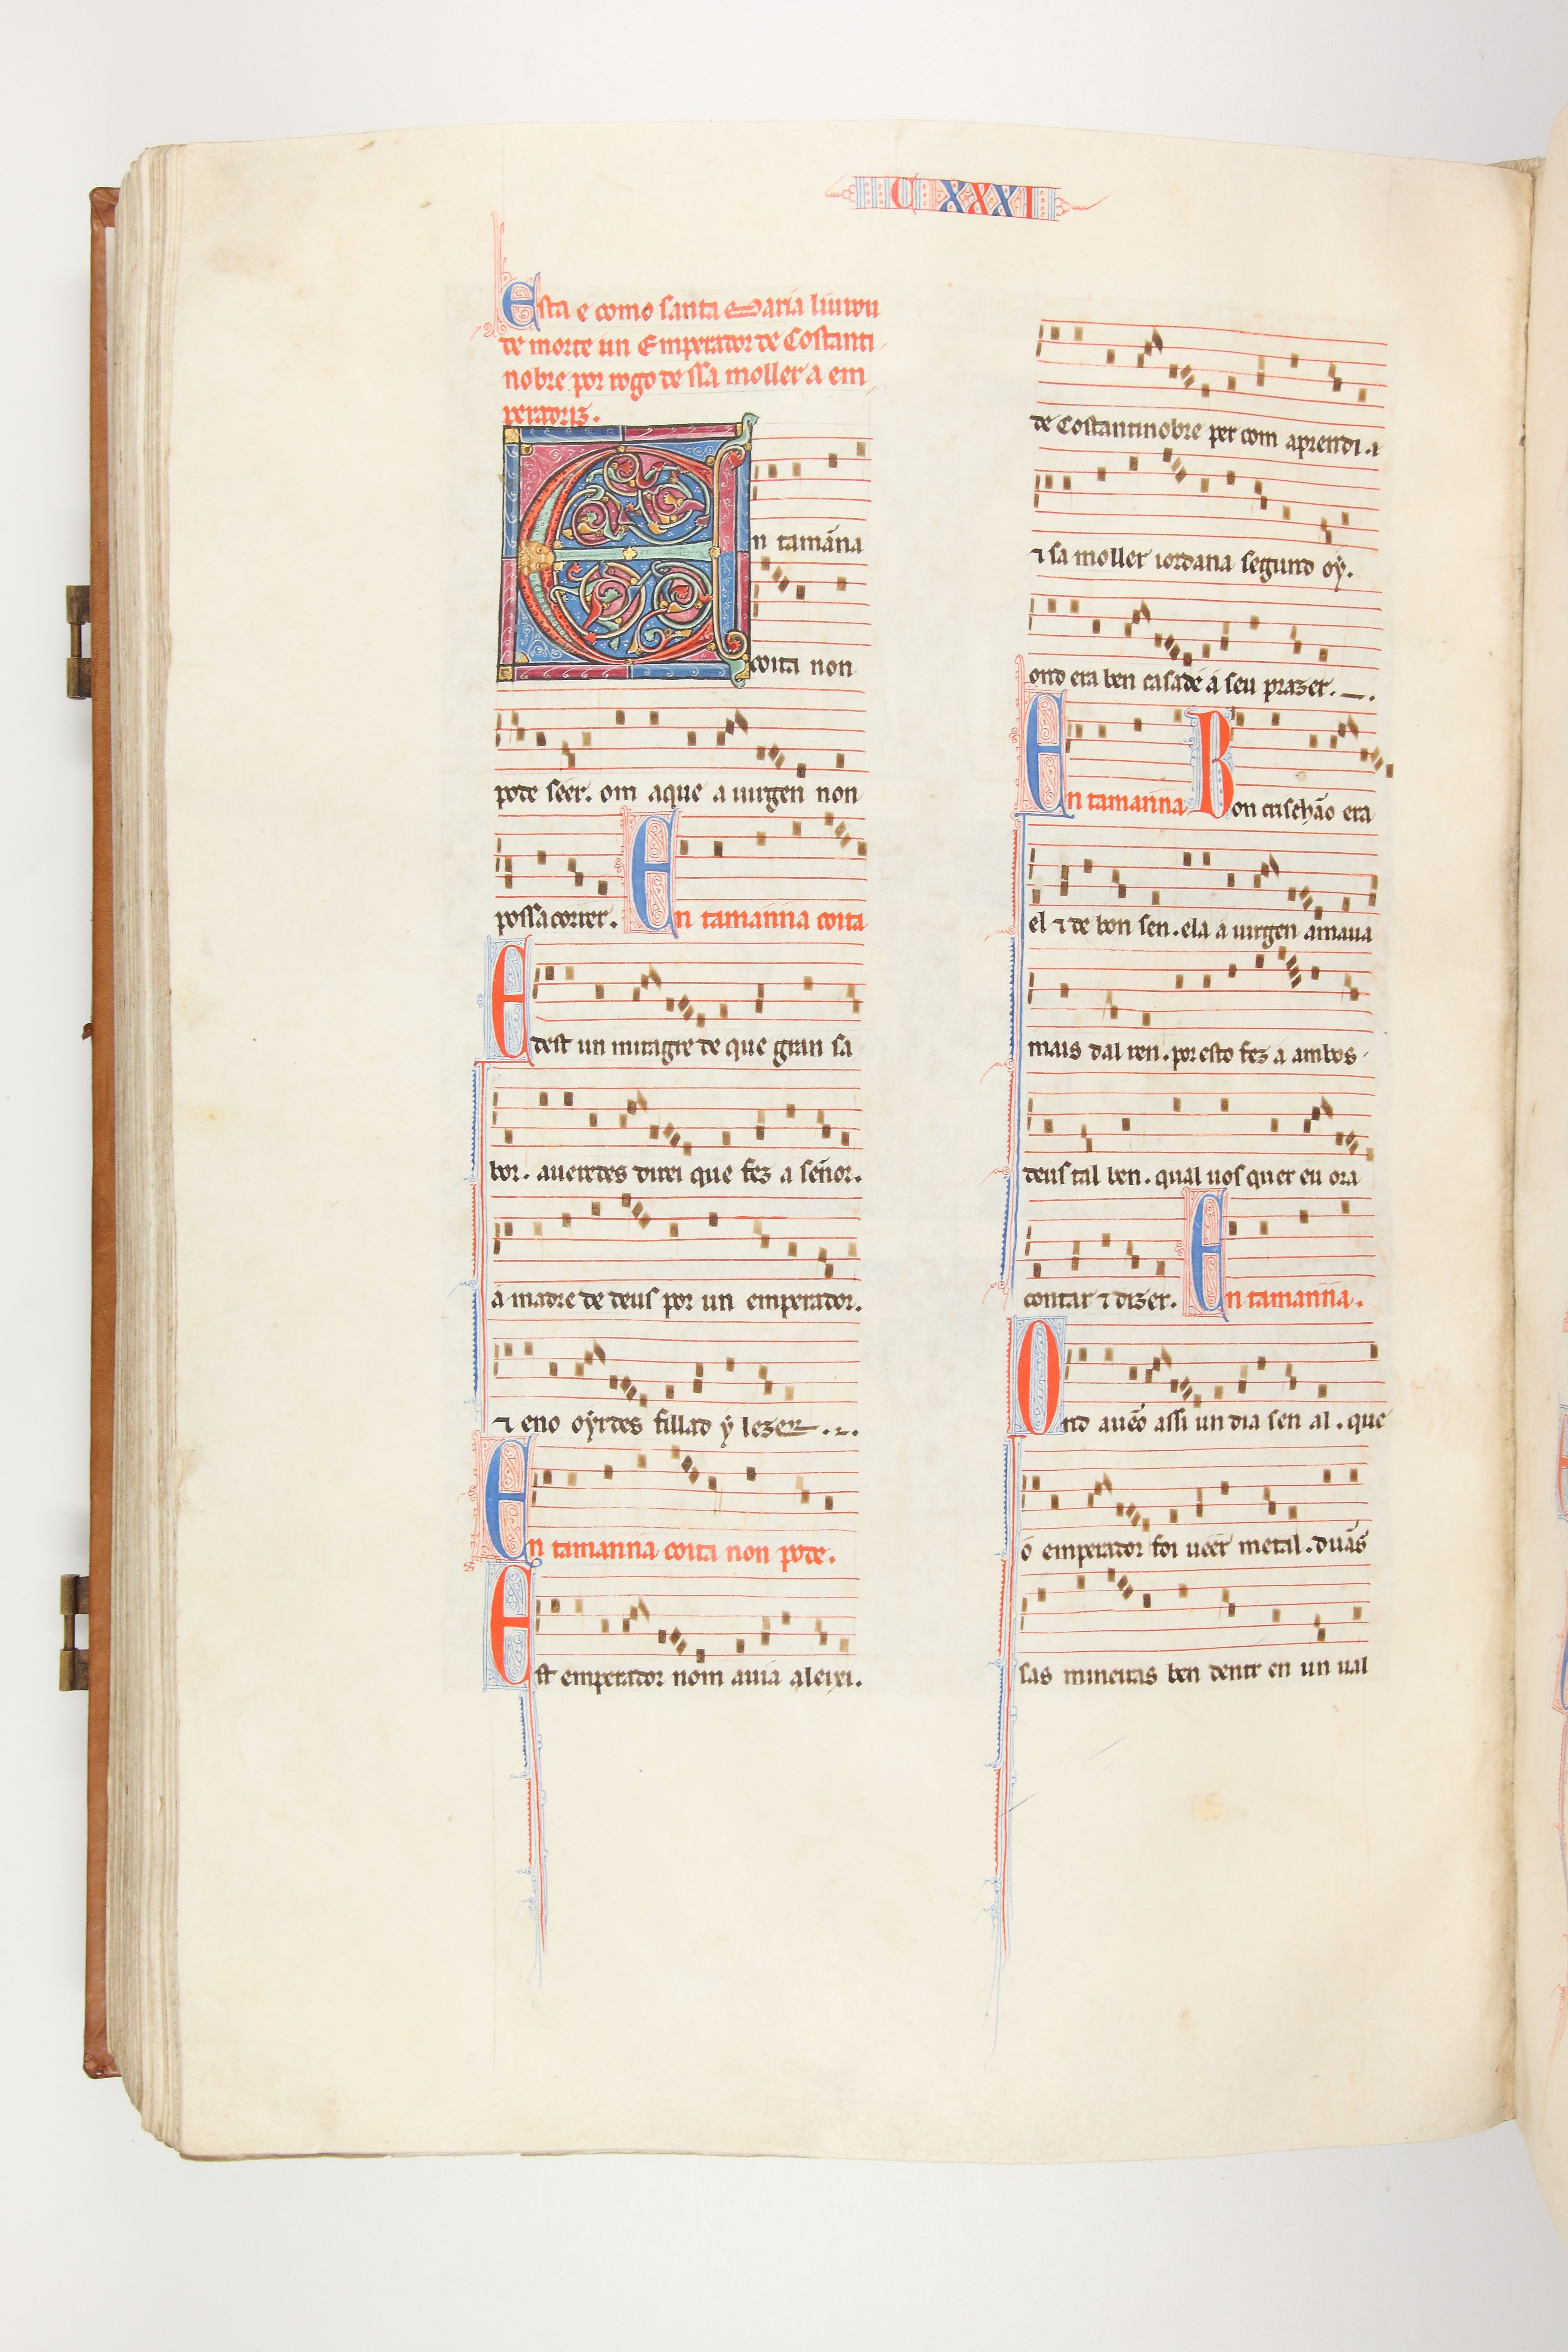 C XXXI
Esta e como santa Maria liurou
de morte un Emperador de Costanti
nobre por rogo de ssa moller a em
peradriz.
En tamãna
coita non
pode séér. om aque a uirgen non
possa correr. En tamanna coita
E dest un miragre de que gran sa
bor. aueredes direi que fez a señor.
a madre de deus por un emperador.
⁊ eno oÿrdes fillad ẏ lezer.
En tamanna coita non pode.
Est emperador nom auia aleixi.
de Costantinobre per com aprendi.
⁊ sa moller iordana segund oẏ.
ond era ben casade a seu prazer.
En tamanna Bon crischão era
el ⁊ de bon sen. ela a uirgen amaua
mais dal ren. por esto fez a ambos
deus tal ben. qual uos quer eu ora
contar ⁊ dizer. En tamanna.
Ond auẽo assi un dia sen al. que
o emperador foi uéér metal. duas
sas mineiras ben dentr en un ual